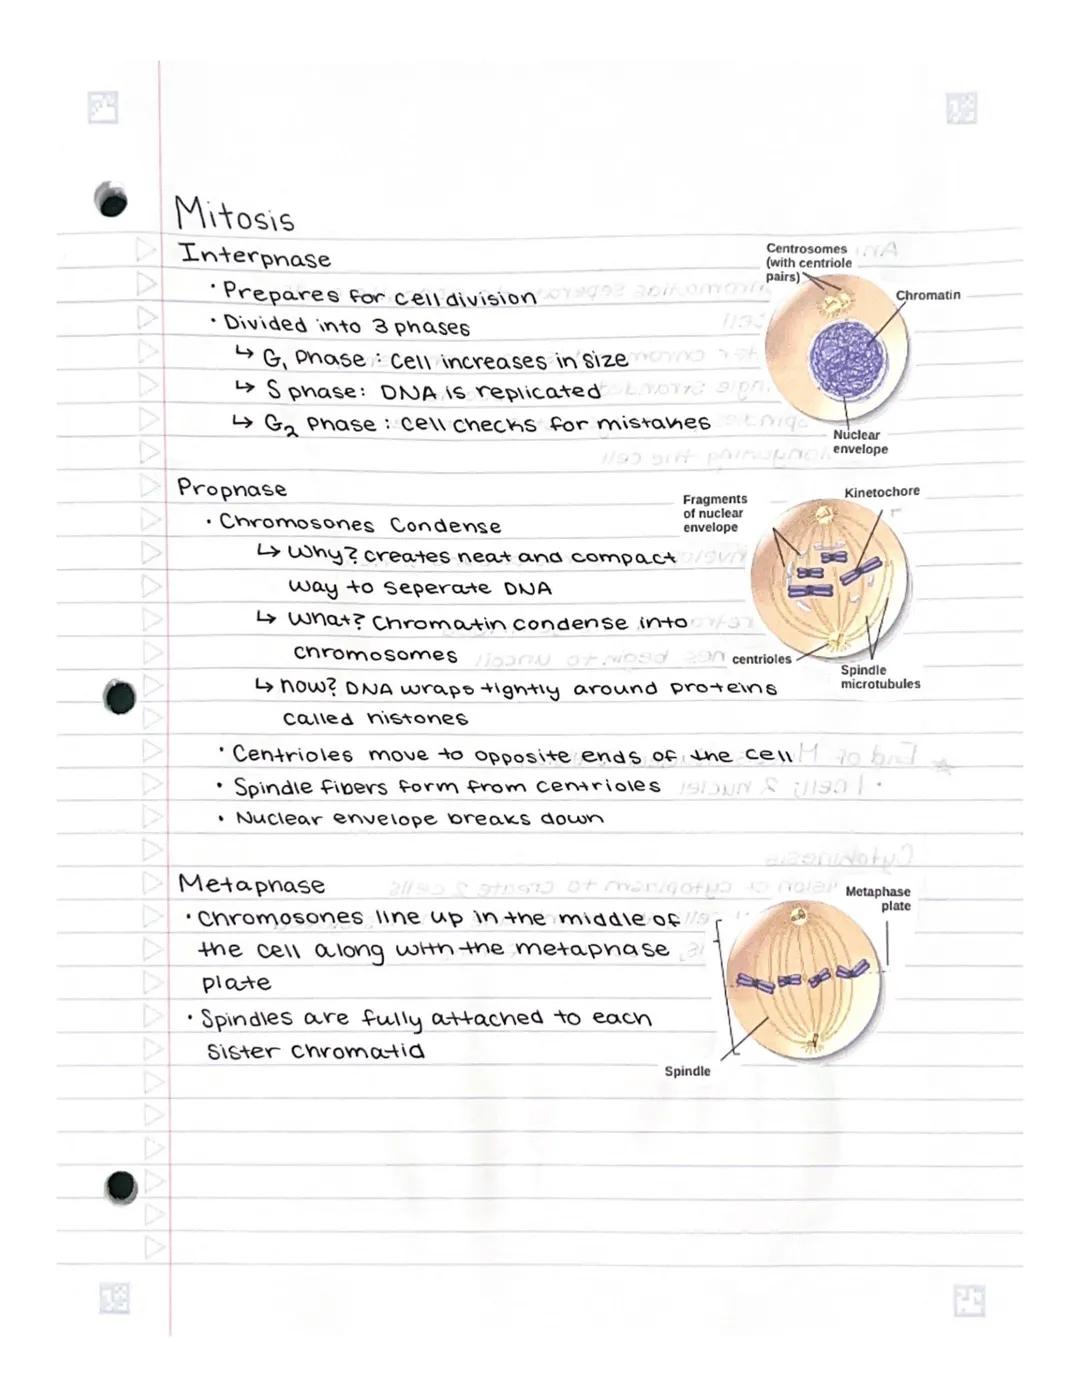 Mitosis
Interphase
Centrosomes
(with centriole
pairs)
· Prepares for cell division
Chromatin
· Divided into 3 phases
↳ G₁ Phase : Cell increases in size
↳ S phase: DNA is replicated
↳ G₂ Phase : cell checks for mistakes
Nuclear
envelope
Prophase
Fragments
of nuclear
envelope
Kinetochore
· Chromosones Condense
↳ Why? creates neat and compact
way to seperate DNA
↳ What? Chromatin condense into
chromosomes
centrioles
Spindle
microtubules
↳ how? DNA wraps tightly around proteins
called histones
· Centrioles move to opposite ends of the cell
· Spindle fibers form from centrioles
· Nuclear envelope breaks down
Metaphase
Metaphase
plate
· Chromosones line up in the middle of
the cell along with the metaphase
plate
· Spindles are fully attached to each
sister chromatid
Spindle